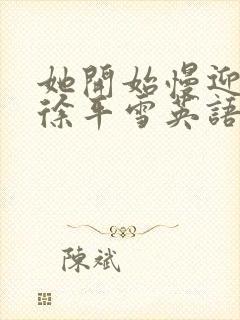 她開始慢迎
徐平雪英語
陳斌